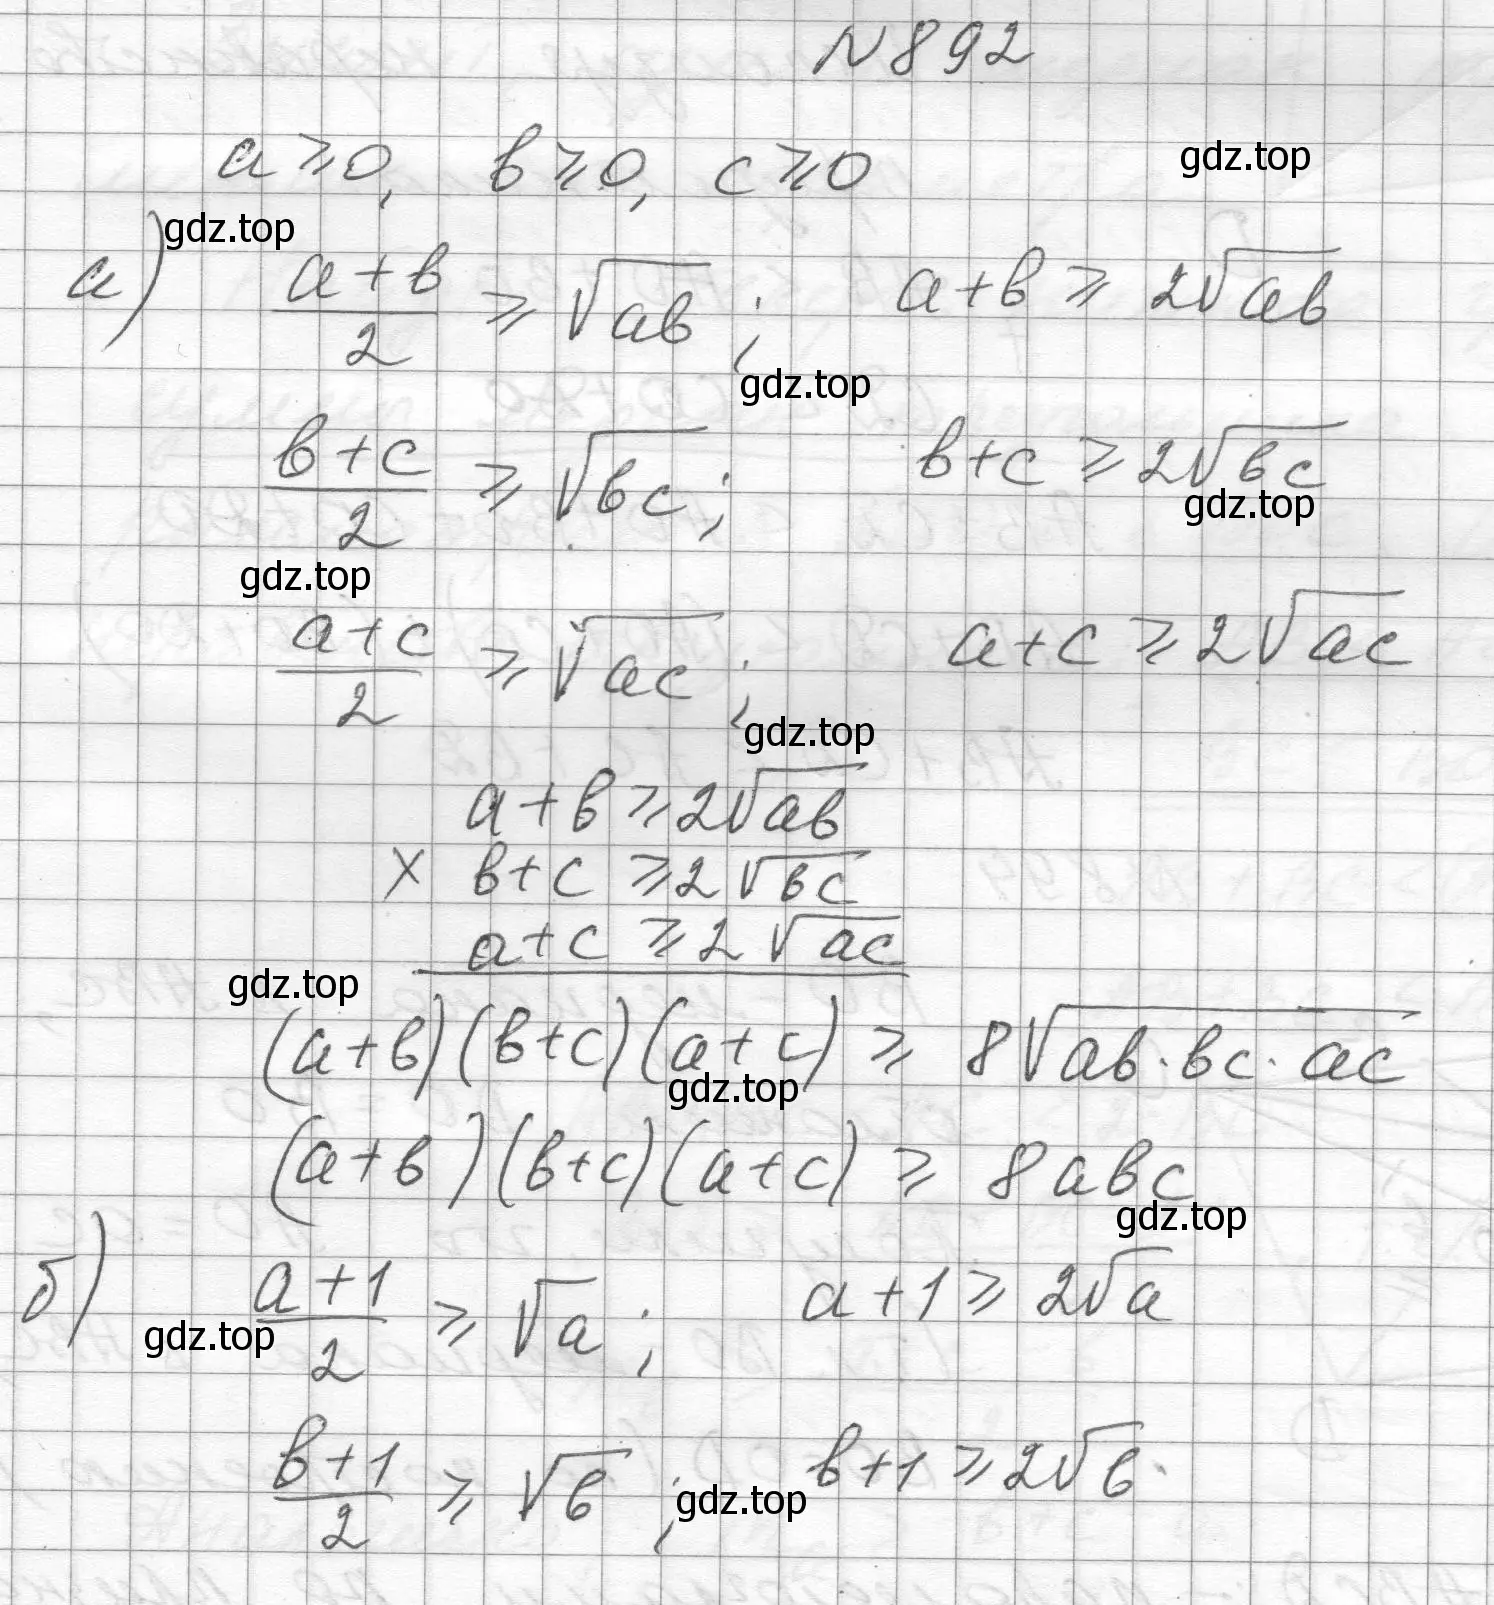 N 892
a ⩾ 0, b ⩾ 0, c ⩾ 0
gdz.top
gdz.top
а) (a+b)/2 ⩾ √ab; a+b ⩾ 2√ab
gdz.top
(b+c)/2 ⩾ √bc; b+c ⩾ 2√bc
gdz.top
gdz.top
(a+c)/2 ⩾ √ac; a+c ⩾ 2√ac
gdz.top
a+b ⩾ 2√ab
× b+c ⩾ 2√bc
a+c ⩾ 2√ac
gdz.top
(a+b)(b+c)(a+c) ⩾ 8√ab·bc·ac
gdz.top
(a+b)(b+c)(a+c) ⩾ 8abc
gdz.top
б) (a+1)/2 ⩾ √a; a+1 ⩾ 2√a
gdz.top
(b+1)/2 ⩾ √b; b+1 ⩾ 2√b
gdz.top